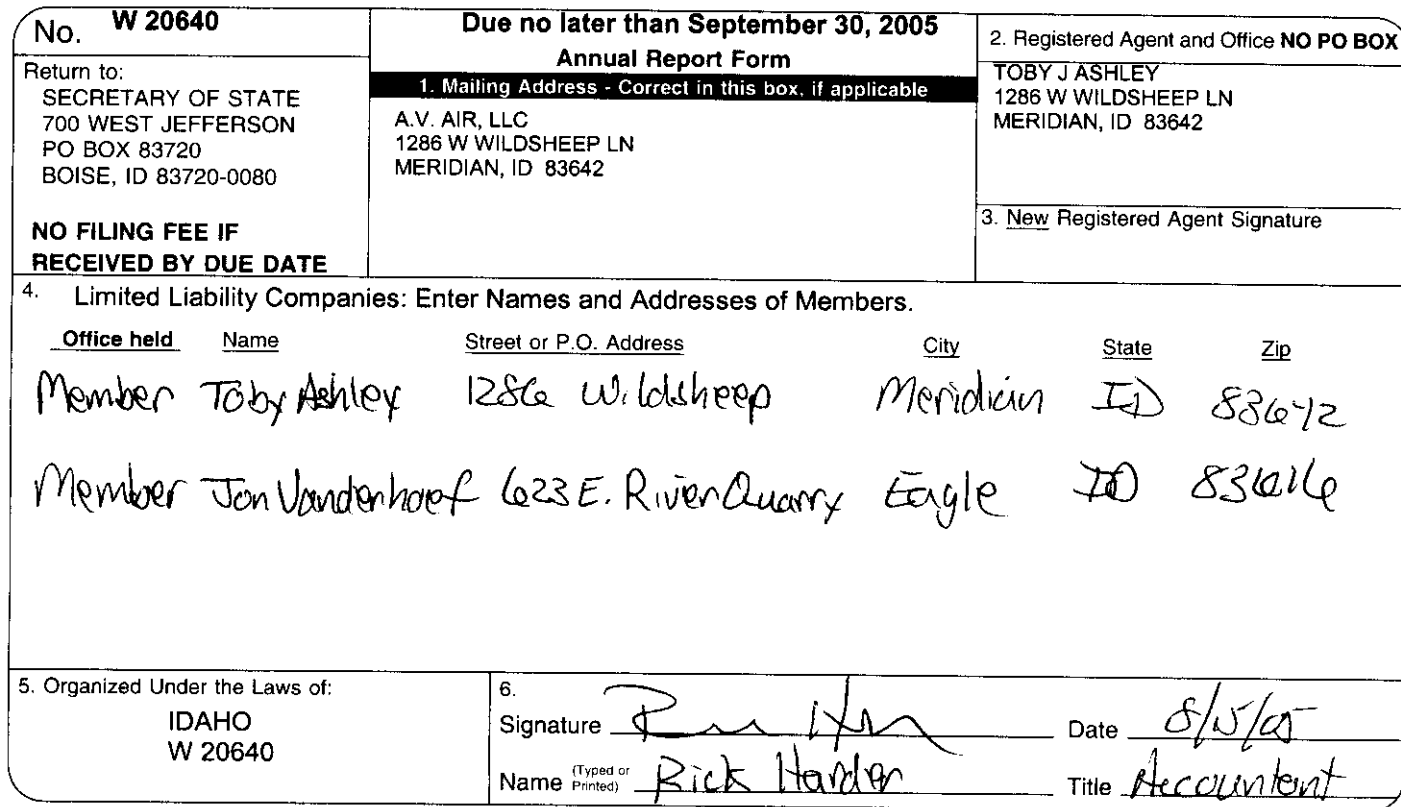 No. W 20640
Return to:
SECRETARY OF STATE
700 WEST JEFFERSON
PO BOX 83720
BOISE, ID 83720-0080
NO FILING FEE IF
RECEIVED BY DUE DATE
Due no later than September 30, 2005
Annual Report Form
1. Mailing Address - Correct in this box, if applicable
A.V. AIR, LLC
1286 W WILDSHEEP LN
MERIDIAN, ID 83642
2. Registered Agent and Office NO PO BOX
TOBY J ASHLEY
1286 W WILDSHEEP LN
MERIDIAN, ID 83642
3. New Registered Agent Signature
4. Limited Liability Companies: Enter Names and Addresses of Members.
Office held Name Street or P.O. Address City State Zip
Member Toby Ashley 1286 Wildsheep Meridian ID 83642
Member Jon Vandenhoef 623 E. River Quarry Eagle ID 83616
5. Organized Under the Laws of:
IDAHO
W 20640
6.
Signature Date 8/5/05
Name (Typed or Printed) Rick Harder Title Accountant